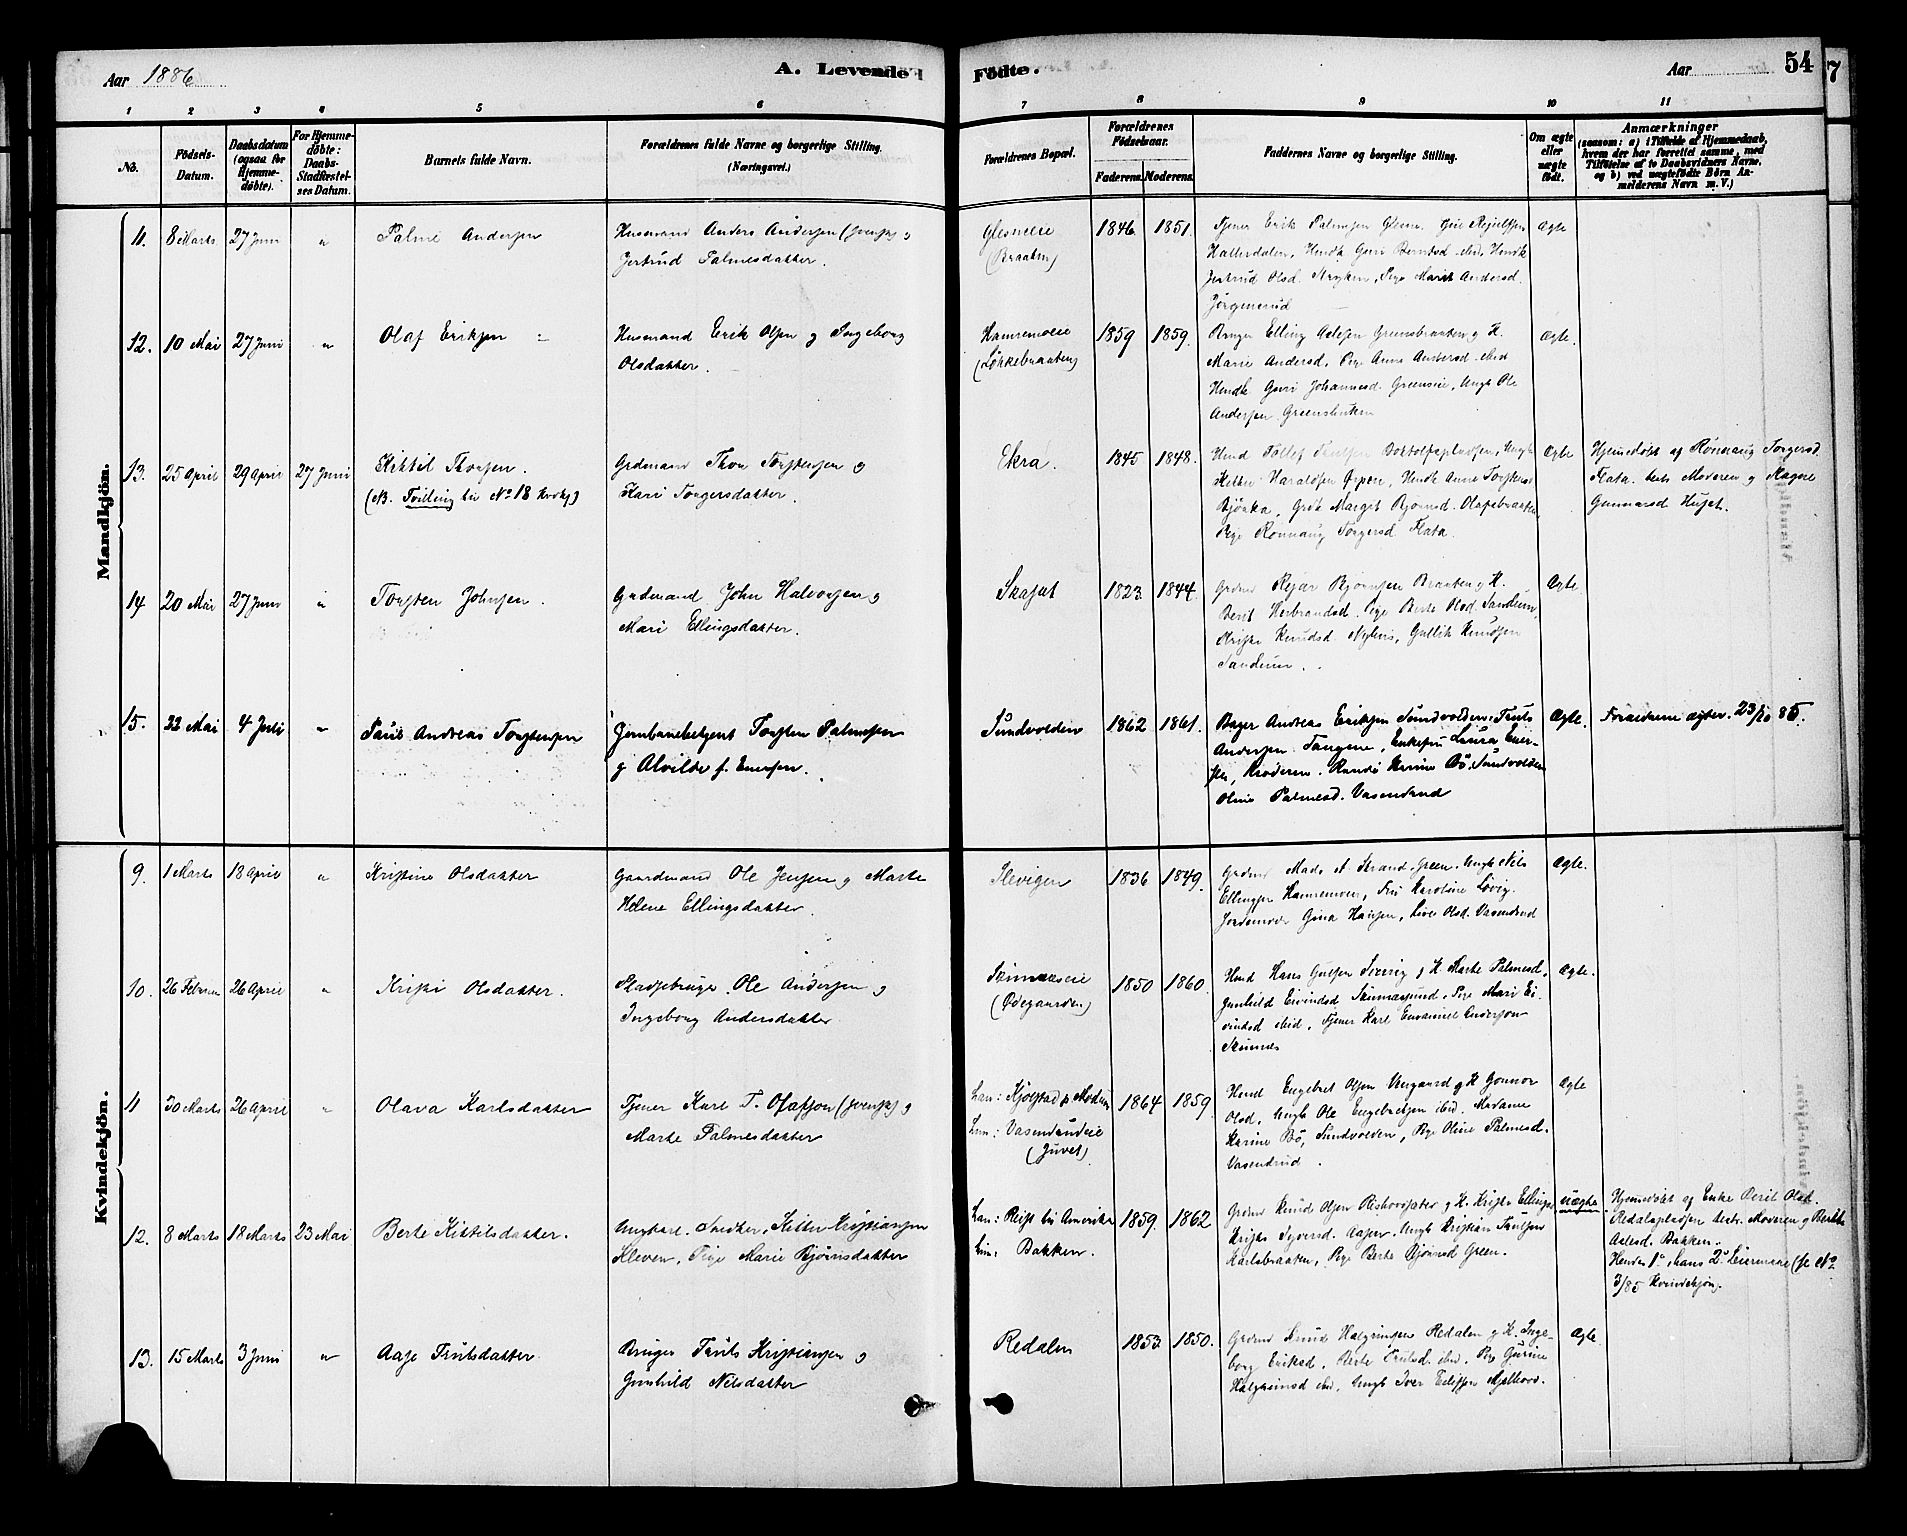 Aar 1886
A. Levende Fødte.
Aar
54
7
1 2 3 4 5 6 7 8 9 10 11
No.
Fødsels-Datum.
Daabsdatum (ogsaa for Hjemmedøbte).
For Hjemmedøbte: Daabs-Stadfæstelses Datum.
Barnets fulde Navn.
Forældrenes fulde Navne og borgerlige Stilling. (Næringsvei.)
Forældrenes Bopæl.
Forældrenes Fødselsaar.
Faderens. Moderens.
Faddernes Navne og borgerlige Stilling.
Om ægte eller uægte født.
Anmærkninger
(saasom: a) i Tilfælde af Hjemmedaab, hvem der har forrettet samme, med Tilføielse af to Daabsvidners Navne, og b) ved uægtefødte Børn Anmelderens Navn m. V.)
Mandkjön.
11. 8 Marts 27 Juni " Palme Andersen
Husmand Anders Andersen (svensk) og
Jertrud Palmesdatter.
Glesneeie
(Braaten)
1846 1851.
Tjener Erik Palmesen Glesne.
Hallesdalen, Hendk Guri Berntsd. ibid, Hendk
Jertrud Olsd. Stryken, Pige Marit Andersd.
Jørgenrud
Ægte
12. 10 Mai 27 Juni " Olaf Eriksen
Husmand Erik Olsen og Ingeborg
Olsdatter.
Hamremoeie
(Løkkebraaten)
1859 1859.
Bruger Elling Aslesen Greensbraaten og K.
Marie Andersd. Pige Anne Andersd. ibid
Hendk Guri Johannesd. Greenseie, Ungk Ole
Andersen Greens
Ægte.
13. 25 April 29 April 27 Juni Kittil Thorsen.
(NB. Tvilling til No 18 kvkj)
Grdmand Thor Torstensen og
Kari Torgersdatter.
Ekra.
1845 1848.
Hmd Tollef Knutsen
Kittil Haraldsen Aspere, Hendk Anne Torstensd
Bjönka, Grdk Margit Bjørnsd. Olafsbraaten
Pige Rønnaug Torgersd Flata.
Ægte
Hjemmedøbt af Rønnaug Torgersd
Flata. bevts. Moderen og Ragne
Gunnarsd Huset.
14 20 Mai 27 Juni " Torsten Johnsen.
Grdmand John Halvorsen og
Mari Ellingsdatter.
Skafsæt
1823 1844.
Grdmd Rejar Bjørnsen Braaten og K.
Berit Herbrandsd. Pige Berte Olsd. Sandum,
Knudsd. Nyhus, Gullik Knudsen
Sandum.
Ægte.
15. 22 Mai 4 Juli " Paul Andreas Torstensen
Jernbanebetjent Torsten Palmesen
og Alvilde f. Enersen.
Sundvolden
1862 1861.
Bager Andreas Eriksen Sundvolden, Truls
Andersen Tangene, Enkefru Laura Ener-
sen, Krøderen. Karine Bø, Sundvolden
Oline Palmesd. Vasendrud
Ægte.
Forældrene ægtev. 23/10 85.
Kvindekjön.
9. 1 Marts 18 April " Kristine Olsdatter
Gaardmand Ole Jensen og Marte
Helene Ellingsdatter.
Slevigen
1836 1849.
Grdmd Mads A. Strand, Green. Ungk Nils
Ellingsen Hamremoen, Fru Karoline Løvig.
Jordemoder Gina Hansen, Live Olsd. Vasendrud
Ægte.
10. 26 Februar 26 April " Kristi Olsdatter.
Pladsbruger Ole Andersen og
Ingeborg Andersdatter
Skinneseie
(Ødegaarden)
1850 1860.
Hmd Hans Gulsen og K. Marte Palmesd.
Gunhild Eivindsd Skinnessund. Pige Mari Ei-
vindsd ibid, Tjener Karl Emanuel Anderson
Skinnes
Ægte.
11 30 Marts 26 April " Olava Karlsdatter
Tjener Karl T. Olafson (svensk) og
Marte Palmesdatter
han: Kjølstad p. Modum
hun: Vasendrudeie
(Juvet)
1864 1859
Hmd Engebret Olsen Vengaard og K Gonnor
Olsd, Ungk Ole Engebretsen ibid. Madame
Karine Bø, Sundvolden, Pige Oline Palmesd.
Vasendrud.
Ægte
12. 8 Marts 18 Marts 23 Mai Berte Kittilsdatter.
Ungkarl. Snedker. Kittil Kristiansen
Kleven, Pige Marie Bjørnsdatter
han: Reist til Amerika
hun: Bakken.
1859. 1862
Grdmd Knud Olsen og K. Kristi Ellingsd
Kristi Syversd. Aasen, Ungk Kristian Knutsen
Karlsbraaten, Pige Berte Bjørnsd Green.
uægte
Hjemmedøbt af Enke Berit Olsd.
Redalspladsen bevts. Moderen og Berthe
Aslesd. Bakken.
Hendes 1ste, hans 2det Leiermaal (se No
3/85 Kvindekjøn).
13. 15 Marts 3 Juni " Aase Trulsdatter
Bruger Truls Kristiansen og
Gunhild Nilsdatter
Redalen
1853 1850.
Grdmd Knud Halgrimsen Redalen og K. Inge-
borg Eriksd. Berte Trulsd. ibid, Pige Gurine
Halgrimsd ibid, Ungk Iver
Ægte